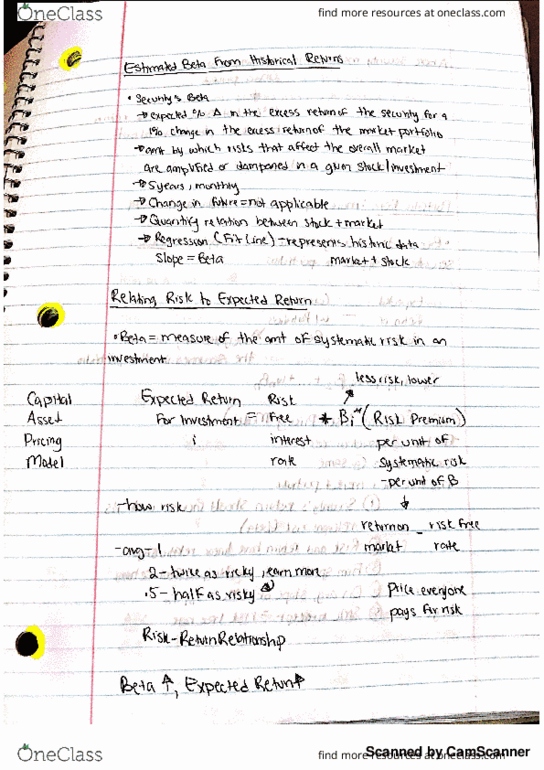 OneClass
find more resources at oneclass.com
Estimated Beta From Historical Returns
• Security's Beta
→ expected % Δ in the excess return of the security for a
1% change in the excess return of the market portfolio
→ amt by which risks that affect the overall market
are amplified or dampened in a given stock/investment
→ 5 years, monthly
→ Change in future = not applicable
→ Quantify relation between stock + market
→ Regression (Fit Line) - represents historic data
Slope = Beta market + stock
Relating Risk to Expected Return
• Beta = measure of the amt of systematic risk in an
investment
less risk, lower
Capital Expected Return Risk
Asset For Investment = Free + Bi (Risk Premium)
Pricing i interest per unit of
Model rate systematic risk
- per unit of B
- how risk
return on - risk free
- avg - 1 market rate
2 - twice as risky, earn more
.5 - half as risky
Price everyone
pays for risk
Risk-Return Relationship
Beta ↑, Expected Return ↑
OneClass
find more resources at oneclass.com
Scanned by CamScanner